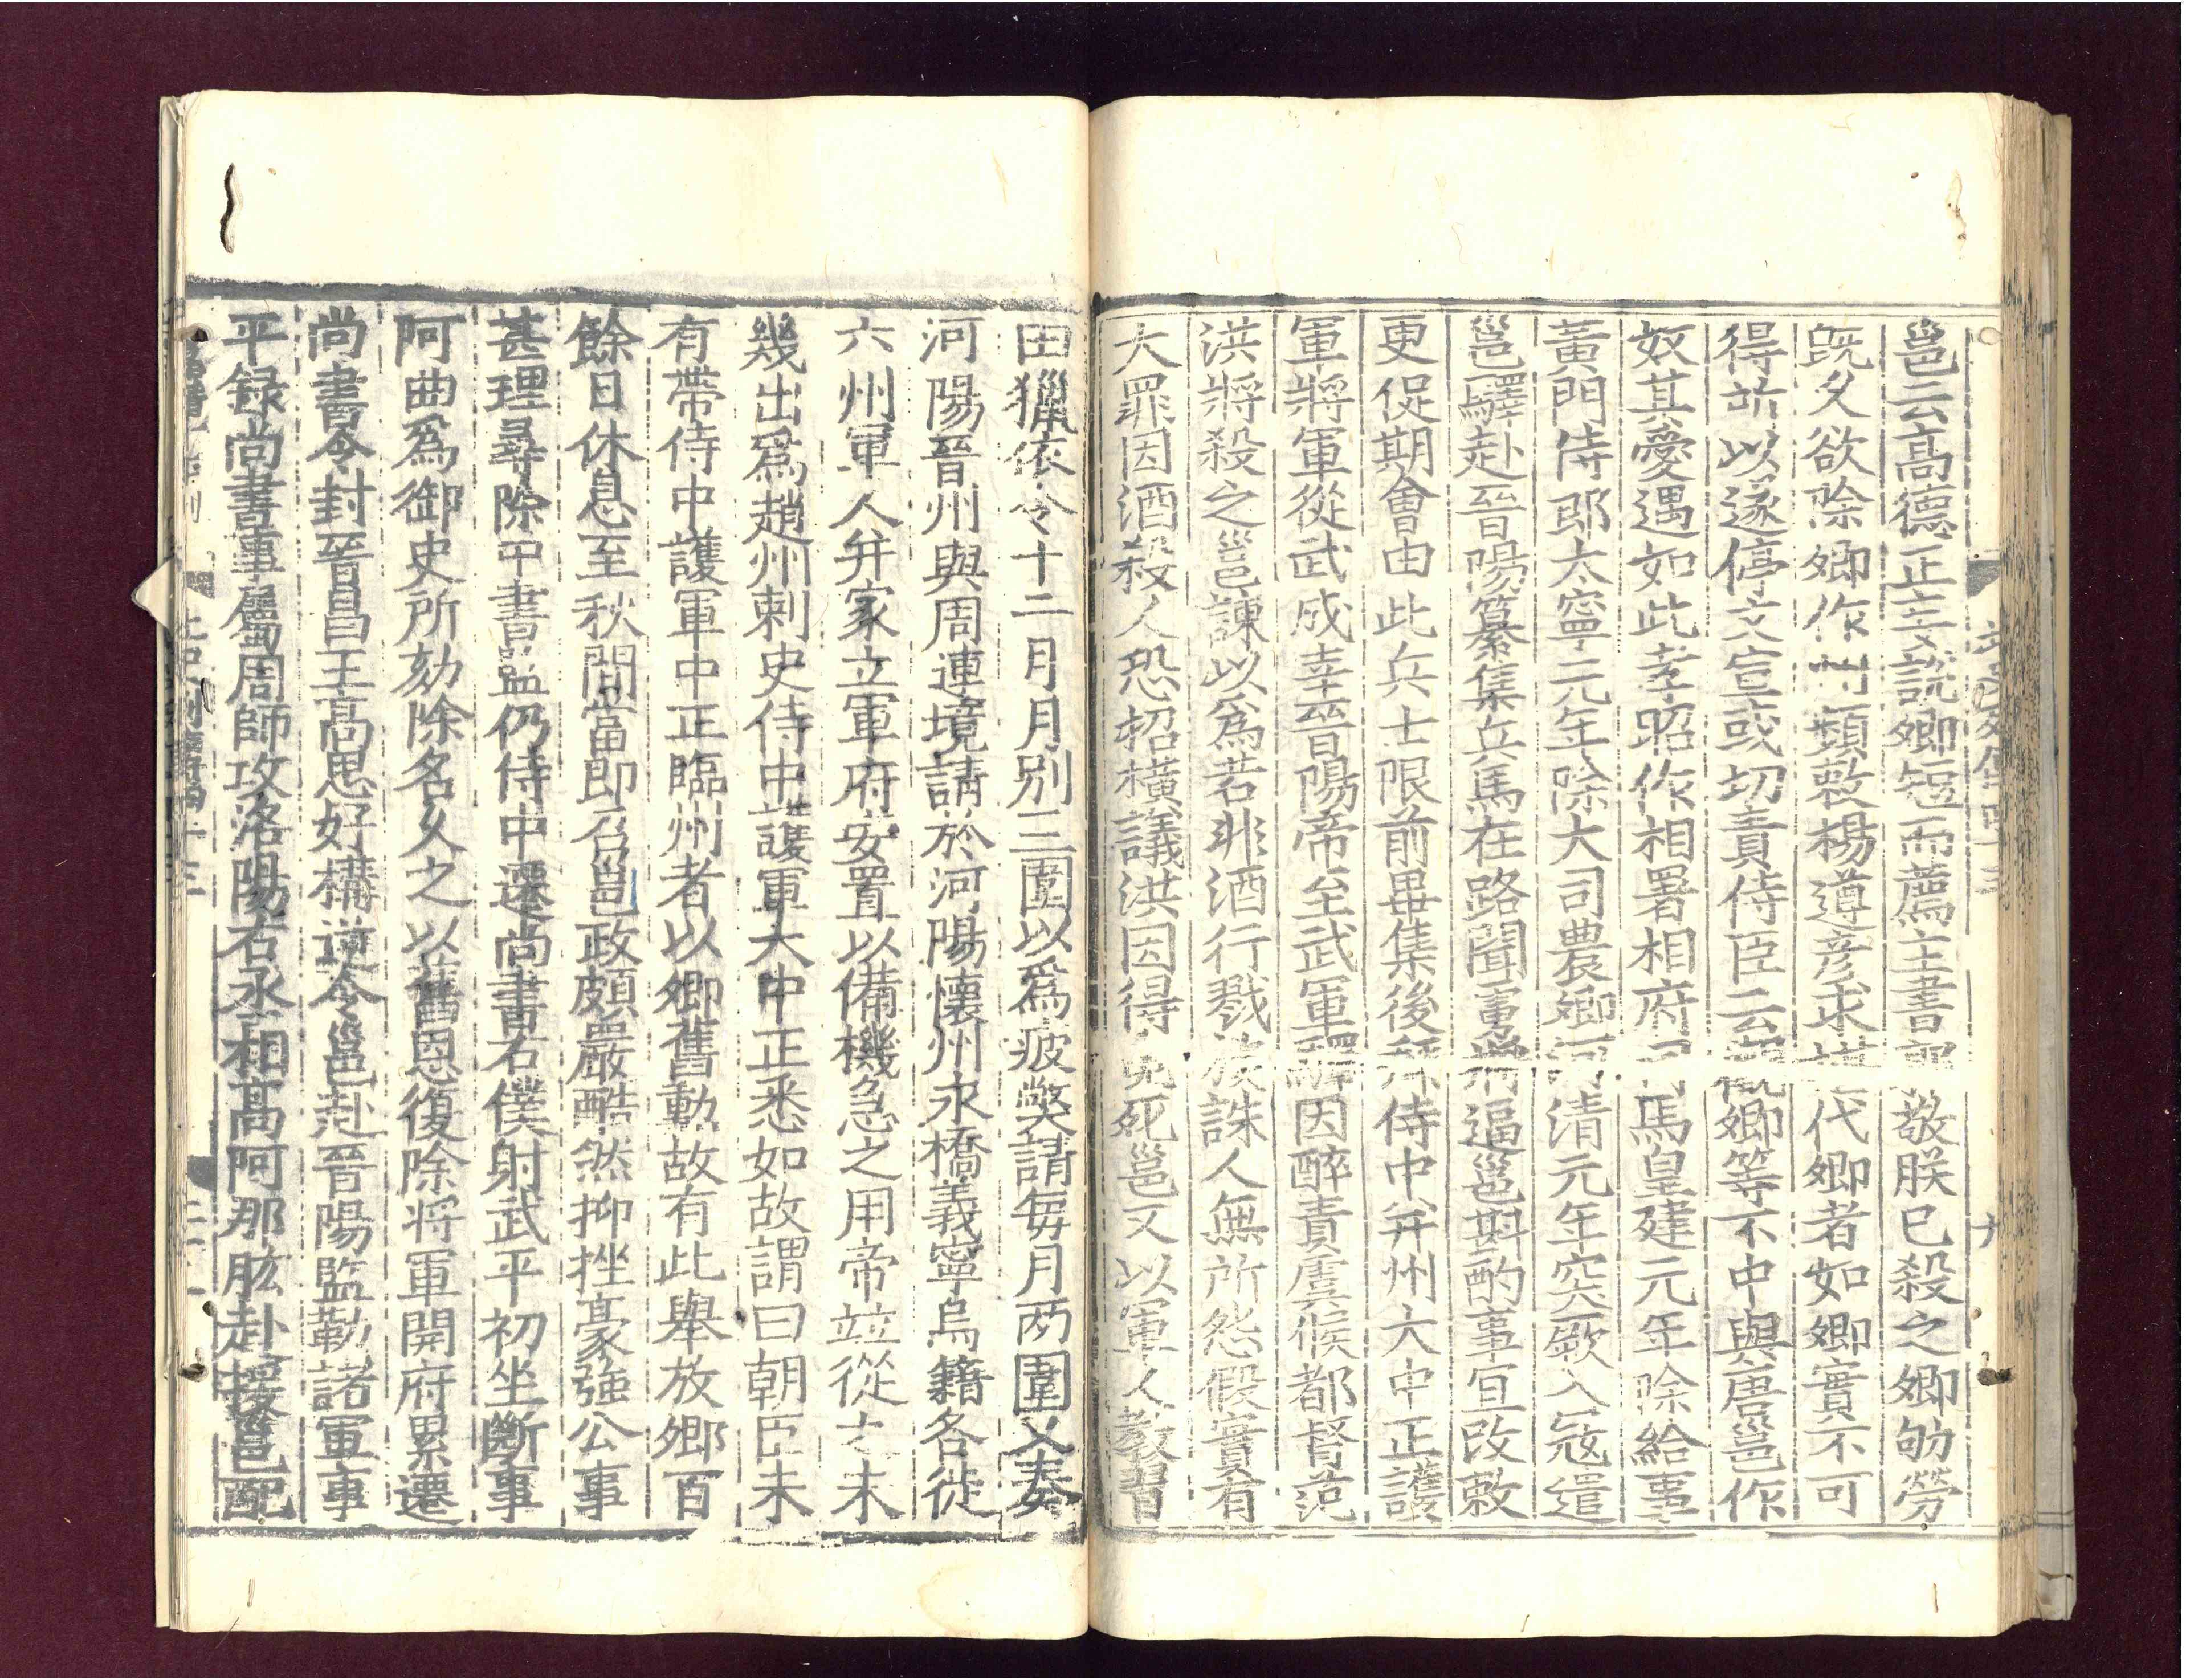 邕云高德正妄説卿短而薦主書郭敬朕已殺之卿劬勞
既久欲除卿作州頻敕楊遵彦求堪代卿者如卿實不可
得所以遂停文宣或切責侍臣云觀卿等不中與唐邕作
奴其愛遇如此孝昭作相署相府司馬皇建元年除給事
黃門侍郎太寧元年除大司農卿河清元年突厥入冦遣
邕驛赴晉陽纂集兵馬在路聞虜將逼邕斟酌事宜改敕
更促期會由此兵士限前畢集後拜侍中并州大中正護
軍將軍從武成幸晉陽帝至武軍驛因醉責虞候都督范
洪將殺之邕諫以爲若非酒行戮族誅人無所怨假實有
大罪因酒殺人恐招橫議洪因得免死邕又以軍人敎習
田獵依令十二月月别三圍以爲疲獘請毎月两圍又奏
河陽晉州與周連境請於河陽懷州永橋義寧烏籍各徙
六州軍人并家立軍府安置以備機急之用帝並從之未
幾出爲趙州刺史侍中護軍大中正悉如故謂曰朝臣未
有帶侍中護軍中正臨州者以卿舊勳故有此舉放卿百
餘日休息至秋間當即召邕政頗嚴酷然抑挫豪強公事
甚理尋除中書監仍侍中遷尚書右僕射武平初坐斷事
阿曲爲御史所劾除名久之以舊恩復除将軍開府累遷
尚書令封晉昌王高思好構逆令邕赴晉陽監勒諸軍事
平録尚書事屬周師攻洛陽右丞相高阿那肱赴援邕配